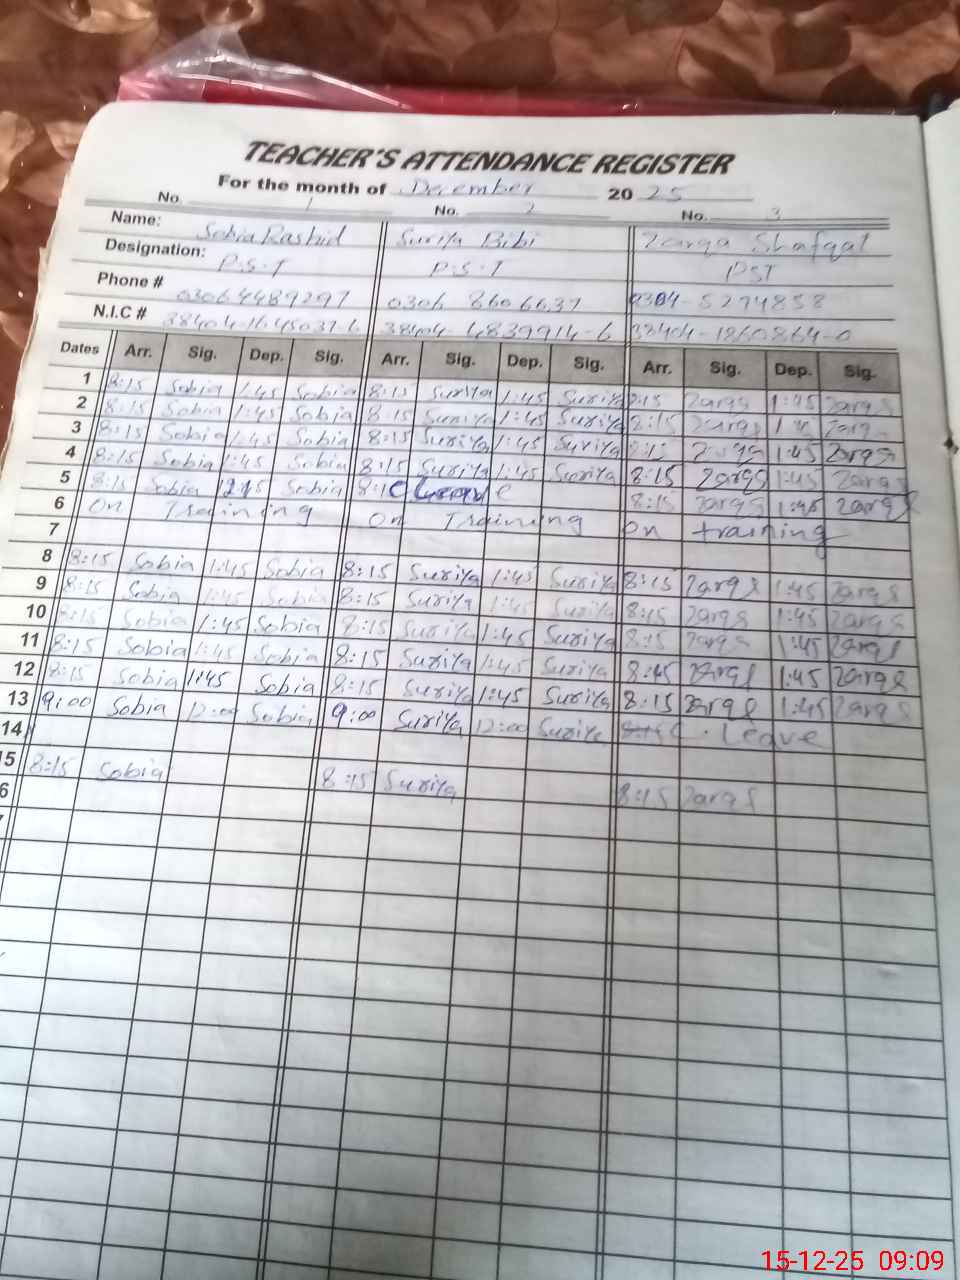 TEACHER'S ATTENDANCE REGISTER
For the month of December 2025
No. 1 No. 2 No. 3
Name: Sobia Rashid Suriya Bibi Zarqa Shafqat
Designation: P.S.T P.S.T PST
Phone # 03064489297 0306 8606637 0304-5274858
N.I.C # 38404-1645037-6 38404-4839914-6 33404-1860864-0
Dates Arr. Sig. Dep. Sig. Arr. Sig. Dep. Sig. Arr. Sig. Dep. Sig.
1 8:15 Sobia 1:45 Sobia 8:15 Suriya 1:45 Suriya 8:15 Zarqa 1:45 Zarqa
2 8:15 Sobia 1:45 Sobia 8:15 Suriya 1:45 Suriya 8:15 Zarqa Zarqa
3 8:15 Sobia 1:45 Sobia 8:15 Suriya 1:45 Suriya 8:15 Zarqa 1:45 Zarqa
4 8:15 Sobia 1:45 Sobia 8:15 Suriya 1:45 Suriya 8:15 Zarqa 1:45 Zarqa
5 8:15 Sobia 12:15 Sobia Leave 8:15 Zarqa 1:45 Zarqa
6 On Training On Training On training
7
8 8:15 Sobia 1:45 Sobia 8:15 Suriya 1:45 Suriya 8:15 Zarqa 1:45 Zarqa
9 8:15 Sobia 1:45 Sobia 8:15 Suriya 1:45 Suriya 8:15 Zarqa 1:45 Zarqa
10 8:15 Sobia 1:45 Sobia 8:15 Suriya 1:45 Suriya 8:15 Zarqa 1:45 Zarqa
11 8:15 Sobia 1:45 Sobia 8:15 Suriya 1:45 Suriya 8:45 Zarqa 1:45 Zarqa
12 8:15 Sobia 1:45 Sobia 8:15 Suriya 1:45 Suriya 8:15 Zarqa 1:45 Zarqa
13 9:00 Sobia 12:00 Sobia 9:00 Suriya 12:00 Suriya C. Leave
14
15 8:15 Sobia 8:15 Suriya 8:15 Zarqa
6
15-12-25 09:09